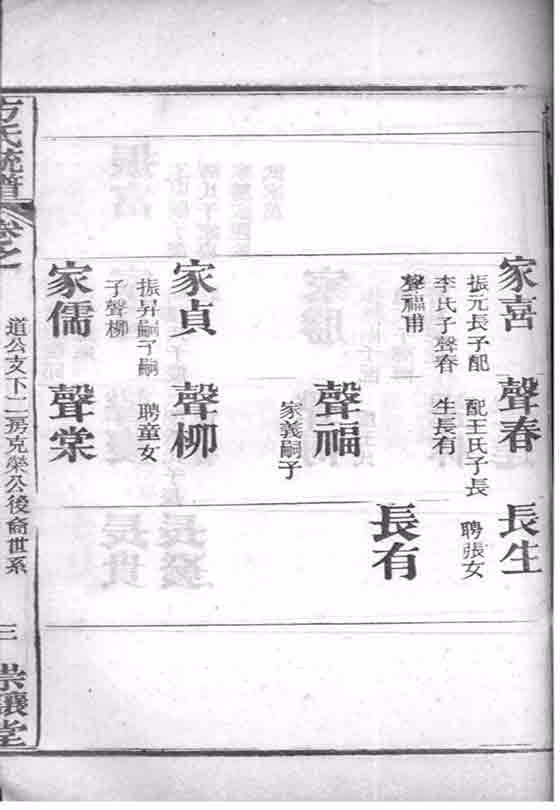 家喜
振元長子配
李氏子聲春
聲福甫
聲春
配王氏子長
生長有
長生
聘張女
聲福
家義嗣子
長有
家貞
振昇嗣子嗣
子聲柳
聲柳
聘童女
家儒
聲棠
方氏統譜
卷之
道公支下二房克榮公後裔世系
三
崇讓堂